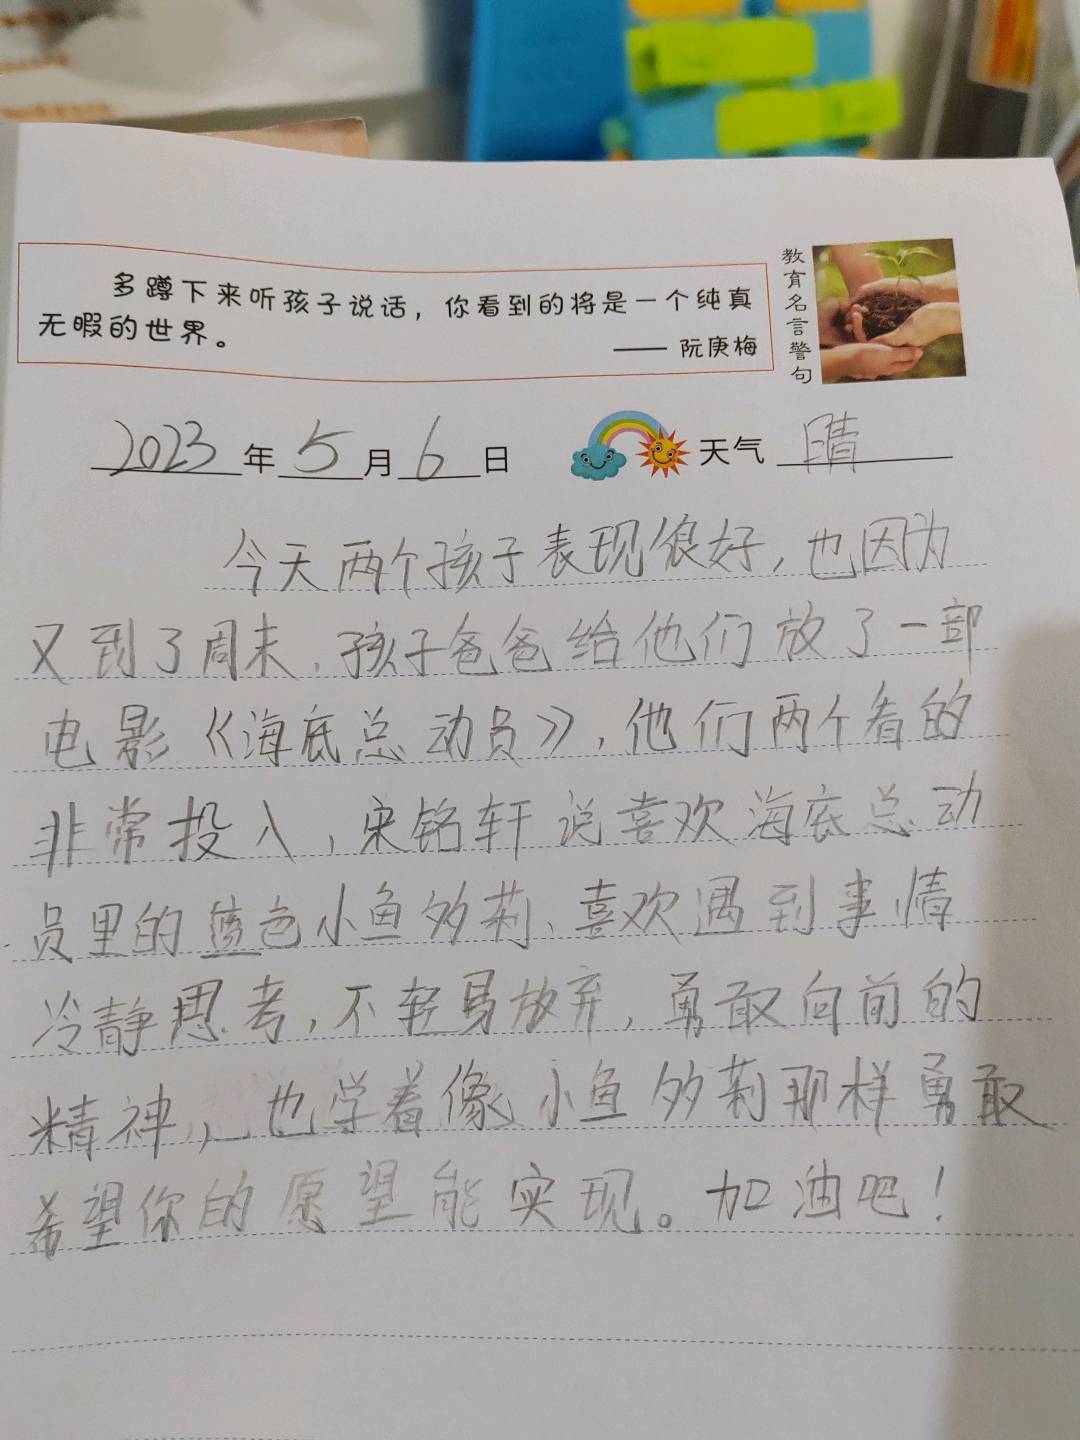 多蹲下来听孩子说话，你看到的将是一个纯真
无暇的世界。
—— 阮庚梅
教育名言警句
2023年5月6日 天气 晴
今天两个孩子表现很好，也因为
又到了周末、孩子爸爸给他们放了一部
电影《海底总动员》，他们两个看的
非常投入，宋铭轩说喜欢海底总动
员里的蓝色小鱼多莉、喜欢遇到事情
冷静思考，不轻易放弃，勇敢向前的
精神，也学着像小鱼多莉那样勇敢
希望你的愿望能实现。加油吧！